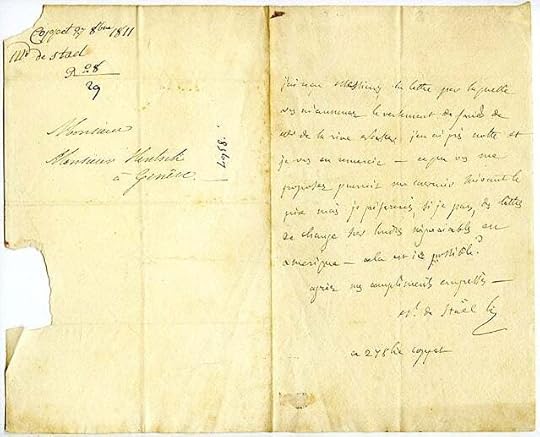 Coppet 27 8bre 1811
Mde de Stael
R 28
29
Monsieur
Monsieur Hentsch
à Genève
j'ai reçu Monsieur la lettre par laquelle
vous m'annoncez le versement de fonds de
de la rive j'en ai pris note et
je vous en remercie — ce que vous me
proposez pourroit me convenir suivant le
prix mais je préférerois, si je puis, des lettres
de change sur londres négociables en
amérique — cela est il possible?
agréez mes compliments empressés —
de Staël
ce 27 8bre coppet